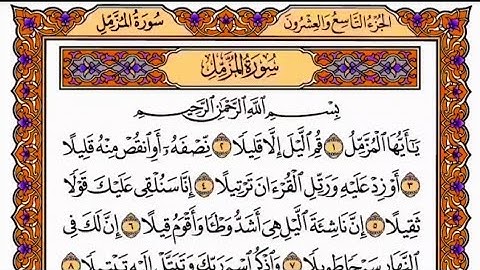 الجزء التاسع والعشرون
سورة المزمل
سورة المزمل
بسم الله الرحمن الرحيم
يَٰٓأَيُّهَا ٱلْمُزَّمِّلُ ١ قُمِ ٱلَّيْلَ إِلَّا قَلِيلًا ٢ نِّصْفَهُۥٓ أَوِ ٱنقُصْ مِنْهُ قَلِيلًا
٣ أَوْ زِدْ عَلَيْهِ وَرَتِّلِ ٱلْقُرْءَانَ تَرْتِيلًا ٤ إِنَّا سَنُلْقِى عَلَيْكَ قَوْلًا
ثَقِيلًا ٥ إِنَّ نَاشِئَةَ ٱلَّيْلِ هِىَ أَشَدُّ وَطْـًٔا وَأَقْوَمُ قِيلًا ٦ إِنَّ لَكَ فِى
ٱلنَّهَارِ سَبْحًا طَوِيلًا ٧ وَٱذْكُرِ ٱسْمَ رَبِّكَ وَتَبَتَّلْ إِلَيْهِ تَبْتِيلًا ٨